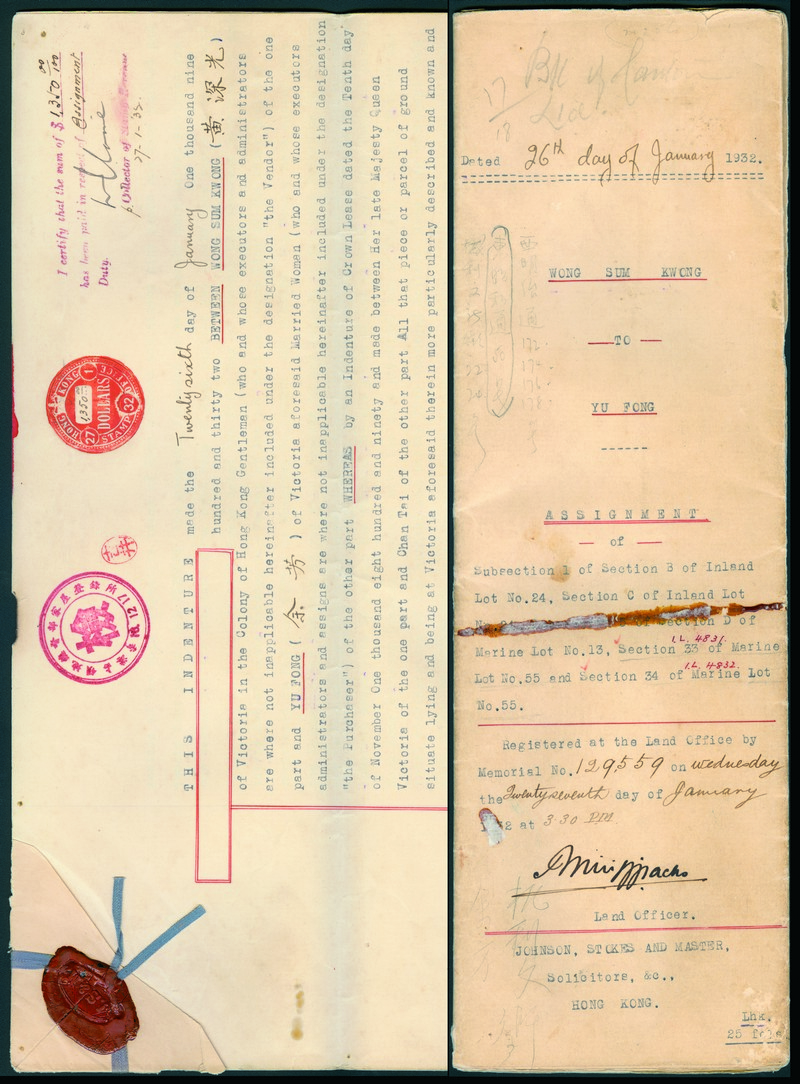 I certify that the sum of $ 1,350 00/100
has been paid in respect of Assignment
Duty.
Collector of Stamp Revenue
27-1-32.
HONG KONG
1350.00
DOLLARS
27 1 32
STAMP OFFICE
THIS INDENTURE made the Twenty sixth day of January One thousand nine
hundred and thirty two BETWEEN WONG SUM KWONG (黄深光)
of Victoria in the Colony of Hong Kong Gentleman (who and whose executors and administrators
are where not inapplicable hereinafter included under the designation "the Vendor") of the one
part and YU FONG ( 余芳 ) of Victoria aforesaid Married Woman (who and whose executors
administrators and assigns are where not inapplicable hereinafter included under the designation
"the Purchaser") of the other part WHEREAS by an Indenture of Crown Lease dated the Tenth day
of November One thousand eight hundred and ninety and made between Her late Majesty Queen
Victoria of the one part and Chan Tai of the other part All that piece or parcel of ground
situate lying and being at Victoria aforesaid therein more particularly described and known and
17/18
Dated 26th day of January 1932.
WONG SUM KWONG
TO
YU FONG
ASSIGNMENT
of
Subsection 1 of Section B of Inland
Lot No.24, Section C of Inland Lot
Section D of
I.L. 4831.
Marine Lot No.13, Section 33 of Marine
I.L. 4832.
Lot No.55 and Section 34 of Marine Lot
No.55.
Registered at the Land Office by
Memorial No. 129,559 on Wednesday
the Twenty seventh day of January
1932 at 3.30 P.M.
Land Officer.
JOHNSON, STOKES AND MASTER,
Solicitors, &c.,
HONG KONG.
Lhk.
25 fols